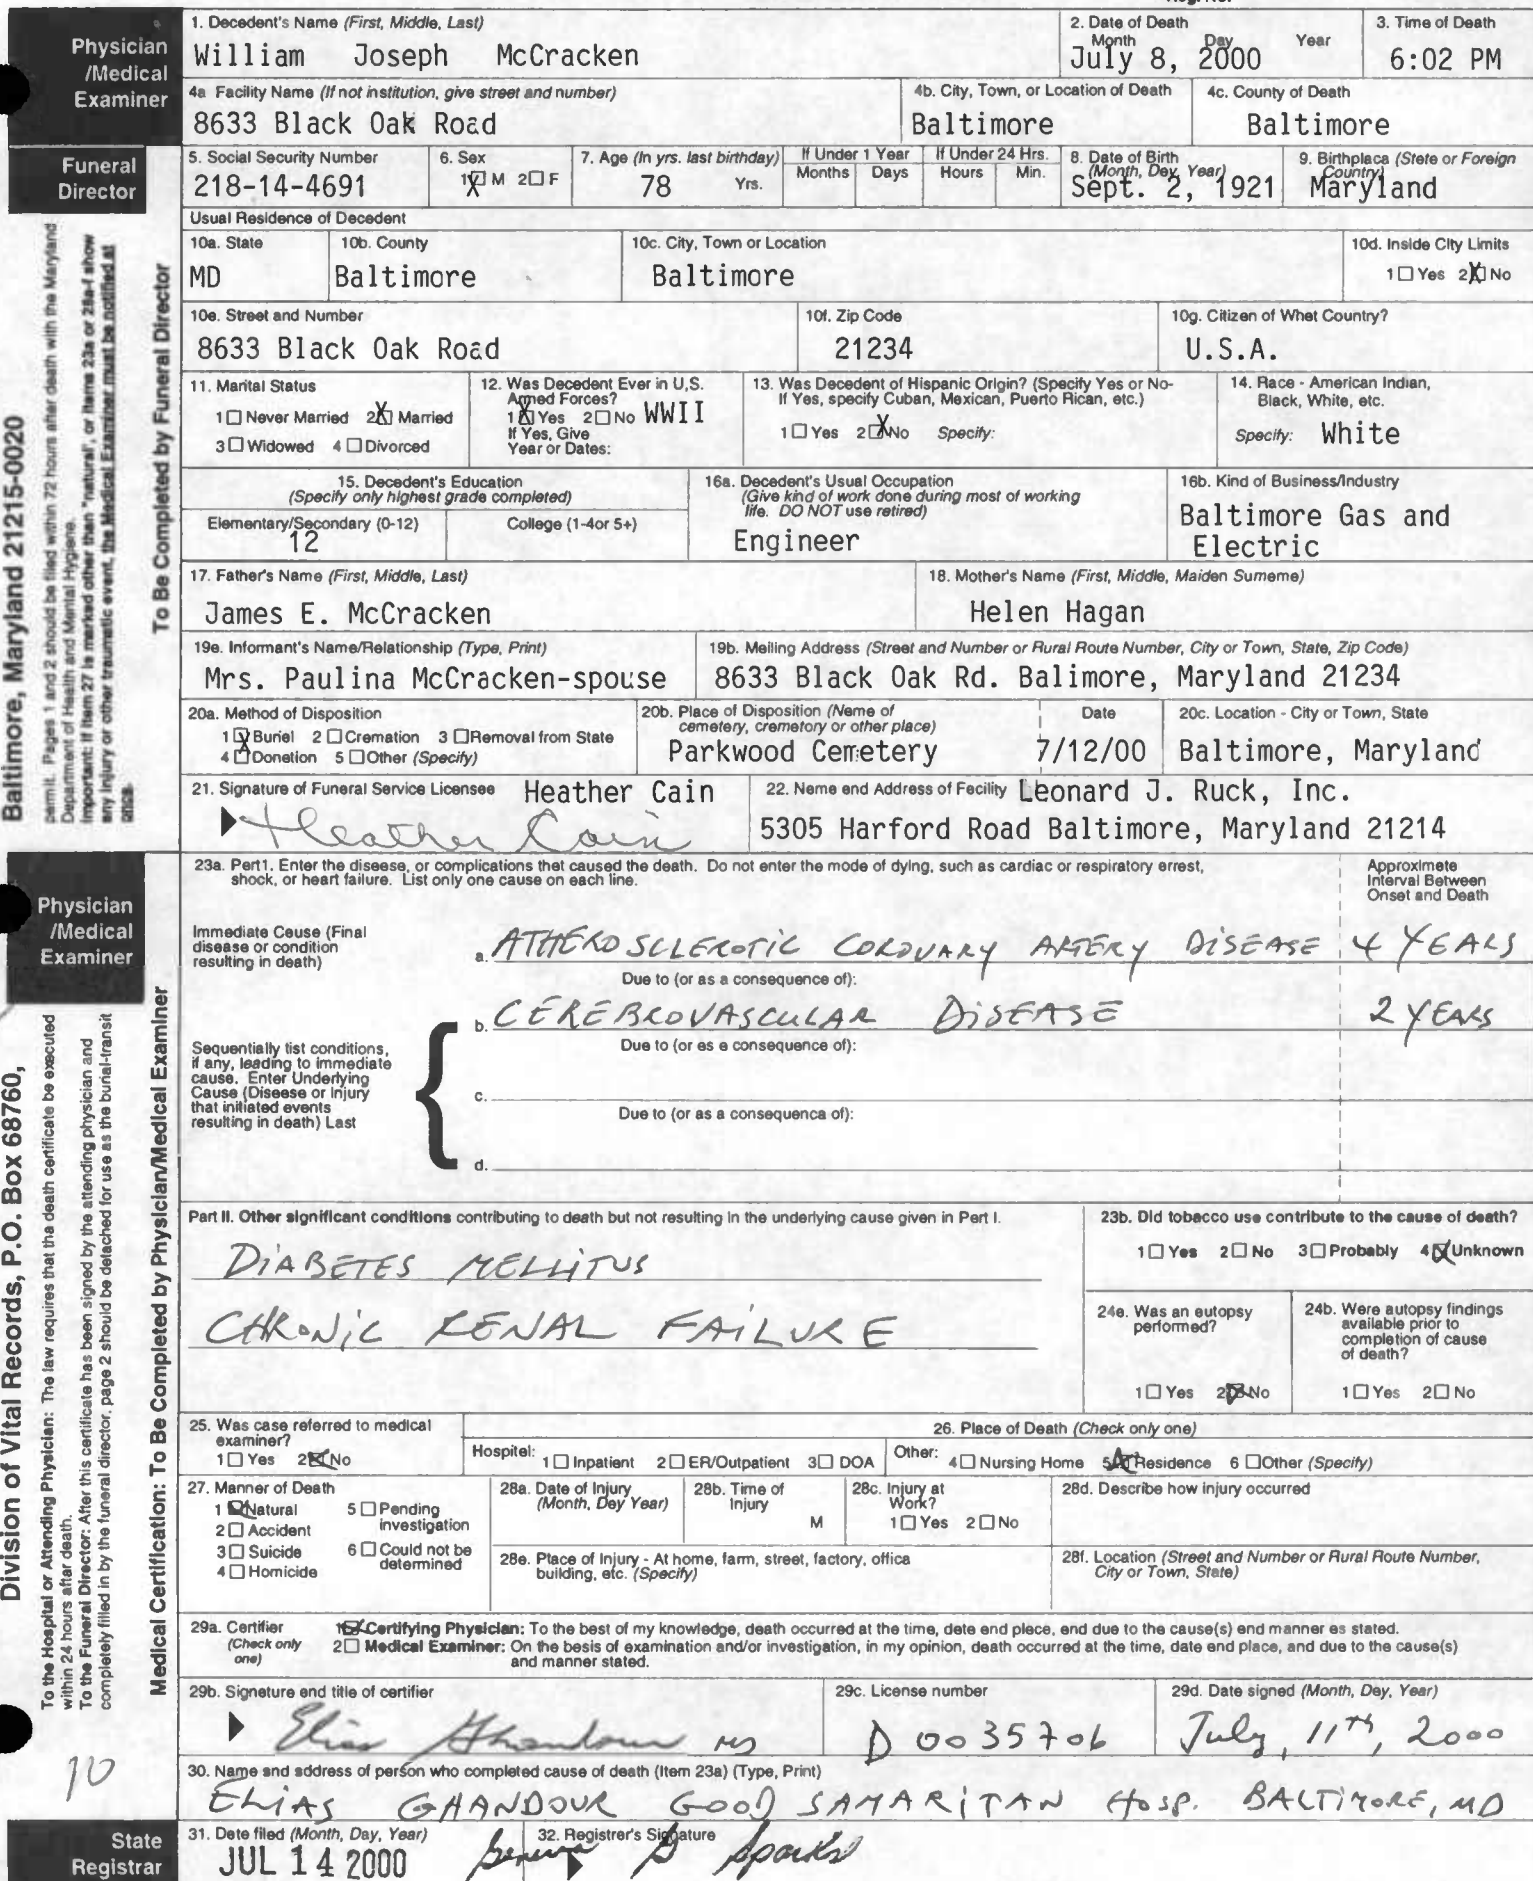 Physician
/Medical
Examiner
1. Decedent's Name (First, Middle, Last)
William Joseph McCracken
2. Date of Death
Month Day Year
July 8, 2000
3. Time of Death
6:02 PM
4a Facility Name (If not institution, give street and number)
8633 Black Oak Road
4b. City, Town, or Location of Death
Baltimore
4c. County of Death
Baltimore
Funeral
Director
5. Social Security Number
218-14-4691
6. Sex
1☒ M 2☐ F
7. Age (In yrs. last birthday)
78 Yrs.
If Under 1 Year
Months Days
If Under 24 Hrs.
Hours Min.
8. Date of Birth
(Month, Dey, Year)
Sept. 2, 1921
9. Birthplaca (Stete or Foreign
Country)
Maryland
Usual Residence of Decedent
10a. State
MD
10b. County
Baltimore
10c. City, Town or Location
Baltimore
10d. Inside City Limits
1☐ Yes 2☒ No
10e. Street and Number
8633 Black Oak Road
10f. Zip Code
21234
10g. Citizen of Whet Country?
U.S.A.
11. Marital Status
1☐ Never Married 2☒ Married
3☐ Widowed 4☐ Divorced
12. Was Decedent Ever in U,S.
Armed Forces?
1☒ Yes 2☐ No WWII
If Yes, Give
Year or Dates:
13. Was Decedent of Hispanic Origin? (Specify Yes or No-
If Yes, specify Cuban, Mexican, Puerto Rican, etc.)
1☐ Yes 2☒ No Specify:
14. Race - American Indian,
Black, White, etc.
Specify: White
15. Decedent's Education
(Specify only highest grade completed)
Elementary/Secondary (0-12)
12
College (1-4or 5+)
16a. Decedent's Usual Occupation
(Give kind of work done during most of working
life. DO NOT use retired)
Engineer
16b. Kind of Business/Industry
Baltimore Gas and
Electric
17. Father's Name (First, Middle, Last)
James E. McCracken
18. Mother's Name (First, Middle, Maiden Sumeme)
Helen Hagan
19e. Informant's Name/Relationship (Type, Print)
Mrs. Paulina McCracken-spouse
19b. Meiling Address (Street and Number or Rural Route Number, City or Town, State, Zip Code)
8633 Black Oak Rd. Balimore, Maryland 21234
20a. Method of Disposition
1☒ Buriel 2☐ Cremation 3☐ Removal from State
4☐ Donetion 5☐ Other (Specify)
20b. Place of Disposition (Neme of
cemetery, cremetory or other place)
Parkwood Cemetery
Date
7/12/00
20c. Location - City or Town, State
Baltimore, Maryland
21. Signature of Funeral Service Licensee Heather Cain
Heather Cain
22. Neme end Address of Fecility Leonard J. Ruck, Inc.
5305 Harford Road Baltimore, Maryland 21214
To Be Completed by Funeral Director
Baltimore, Maryland 21215-0020
permit. Pages 1 and 2 should be filed within 72 hours after death with the Maryland
Department of Health and Mental Hygiene.
Important: If item 27 is marked other than "natural", or items 23a or 28a-f show
any injury or other traumatic event, the Medical Examiner must be notified at
once.
Physician
/Medical
Examiner
23a. Pert1. Enter the diseese, or complications thet caused the death. Do not enter the mode of dying, such as cardiac or respiratory errest,
shock, or heart failure. List only one cause on each line.
Approximete
Interval Between
Onset and Death
Immediate Ceuse (Final
disease or condition
resulting in death)
a. ATHEROSCLEROTIC CORONARY ARTERY DISEASE 4 YEARS
Due to (or as a consequence of):
b. CEREBROVASCULAR DISEASE 2 YEARS
Due to (or es e consequence of):
Sequentially list conditions,
if any, leading to immediate
cause. Enter Underlying
Cause (Diseese or Injury
that initiated events
resulting in death) Last
c.
Due to (or as a consequenca of):
d.
Part II. Other significant conditions contributing to death but not resulting in the underlying cause given in Pert I.
DIABETES MELLITUS
CHRONIC RENAL FAILURE
23b. Did tobacco use contribute to the cause of death?
1☐ Yes 2☐ No 3☐ Probably 4☒ Unknown
24e. Was an eutopsy
performed?
1☐ Yes 2☒ No
24b. Were autopsy findings
available prior to
completion of cause
of death?
1☐ Yes 2☐ No
25. Was case referred to medical
examiner?
1☐ Yes 2☒ No
26. Place of Death (Check only one)
Hospitel: 1☐ Inpatient 2☐ ER/Outpatient 3☐ DOA
Other: 4☐ Nursing Home 5☒ Residence 6☐ Other (Specify)
27. Manner of Death
1☒ Natural
2☐ Accident
3☐ Suicide
4☐ Homicide
5☐ Pending
investigation
6☐ Could not be
determined
28a. Date of Injury
(Month, Dey Year)
28b. Time of
Injury
M
28c. Injury at
Work?
1☐ Yes 2☐ No
28d. Describe how injury occurred
28e. Place of Injury - At home, farm, street, factory, offica
building, etc. (Specify)
28f. Location (Street and Number or Rural Route Number,
City or Town, State)
29a. Certifier
(Check only
one)
1☒ Certifying Physician: To the best of my knowledge, death occurred at the time, dete end plece, end due to the cause(s) end manner es stated.
2☐ Medical Examiner: On the besis of examination and/or investigation, in my opinion, death occurred at the time, date end place, and due to the cause(s)
and manner stated.
29b. Signeture end title of certifier
Elias Ghandour MD
29c. License number
D 0035706
29d. Date signed (Month, Dey, Year)
July, 11th, 2000
30. Name and eddress of person who completed cause of death (Item 23a) (Type, Print)
ELIAS GHANDOUR GOOD SAMARITAN HOSP. BALTIMORE, MD
State
Registrar
31. Dete filed (Month, Day, Year)
JUL 14 2000
32. Registrer's Signature
Geneva G Sparks
Medical Certification: To Be Completed by Physician/Medical Examiner
Division of Vital Records, P.O. Box 68760,
To the Hospital or Attending Physician: The law requires that the death certificate be executed
within 24 hours aftar death.
To the Funeral Director: After this certificate has been signed by the attending physician and
completely filled in by the funeral director, page 2 should be detached for use as the burial-transit
10